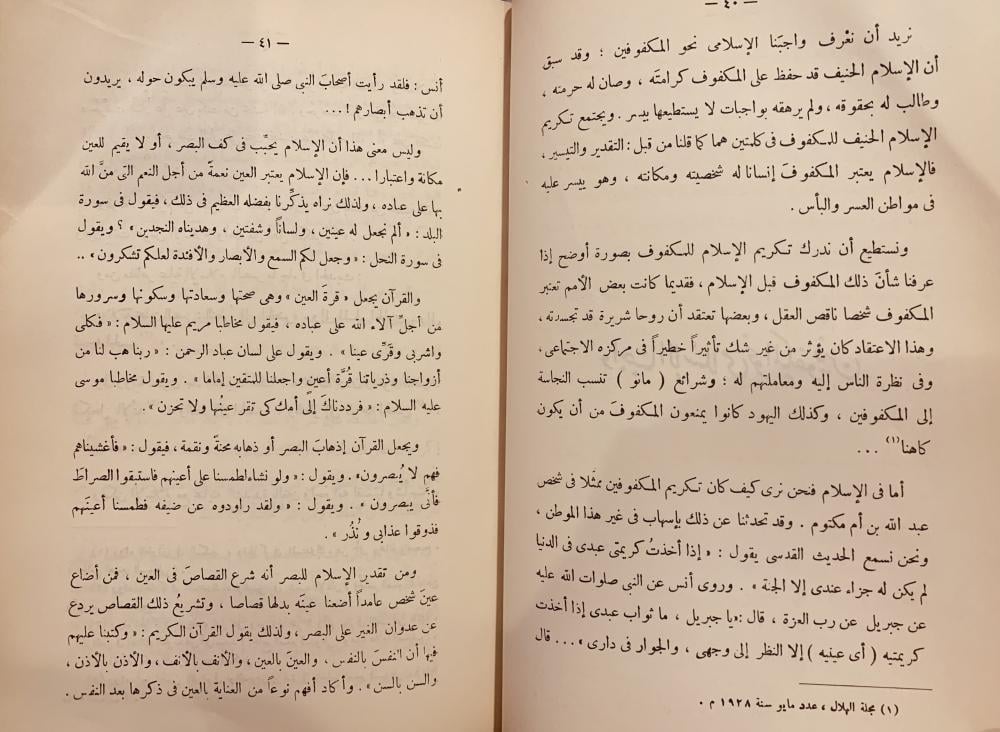 — ٤٠ —
نريد أن نعْرف واجبَنا الإسلامى نحو المكفوفين ؛ وقد سبق
أن الإسلام الحنيف قد حفظ على المكفوف كرامتَه ، وصان له حرمته ،
وطالب له بحقوقه ، ولم يرهقه بواجبات لا يستطيعها بيسر . ويجتمع تكريم
الإسلام الحنيف للمكفوف فى كلمتين هما كما قلنا من قبل : التقدير والتيسير ،
فالإسلام يعتبر المكفوفَ إنسانا له شخصيته ومكانته ، وهو ييسر عليه
فى مواطن العسر والبأس .
ونستطيع أن ندرك تكريم الإسلام للمكفوف بصورة أوضح إذا
عرفنا شأنَ ذلك المكفوف قبل الإسلام ، فقديما كانت بعض الأمم تعتبر
المكفوف شخصا ناقص العقل ، وبعضها تعتقد أن روحا شريرة قد تجسدته ،
وهذا الاعتقاد كان يؤثر من غير شك تأثيراً خطيراً فى مركزه الاجتماعى ،
وفى نظرة الناس إليه ومعاملتهم له ؛ وشرائع ( مانو ) تنسب النجاسة
إلى المكفوفين ، وكذلك اليهود كانوا يمنعون المكفوفَ من أن يكون
كاهنا (١) ...
أما فى الإسلام فنحن نرى كيف كان تكريم المكفوفين ممثَّلا فى شخص
عبد الله بن أم مكتوم . وقد تحدثنا عن ذلك بإسهاب فى غير هذا الموطن ،
ونحن نسمع الحديث القدسى يقول : « إذا أخذتُ كريمتى عبدى فى الدنيا
لم يكن له جزاء عندى إلا الجنة » . وروى أنس عن النبى صلوات الله عليه
عن جبريل عن رب العزة ، قال : «يا جبريل ، ما ثواب عبدى إذا أخذت
كريمتيه ( أى عينيه ) إلا النظر إلى وجهى ، والجوار فى دارى » ... قال
(١) مجلة الهلال ، عدد مايو سنة ١٩٢٨ م .
— ٤١ —
أنس : فلقد رأيت أصحابَ النبى صلى الله عليه وسلم يبكون حوله ، يريدون
أن تذهب أبصارهم ! ...
وليس معنى هذا أن الإسلام يحبِّب فى كف البصر ، أو لا يقيم للعين
مكانة واعتبارا ... فإن الإسلام يعتبر العين نعمةً من أجل النعم التى منَّ الله
بها على عباده ، ولذلك نراه يذكِّرنا بفضله العظيم فى ذلك ، فيقول فى سورة
البلد : « ألم نجعل له عينين ، ولساناً وشفتين ، وهديناه النجدين » ؟ ويقول
فى سورة النحل : « وجعل لكم السمع والأبصار والأفئدة لعلكم تشكرون » ..
والقرآن يجعل « قرةَ العين » وهى صحتها وسعادتها وسكونها وسرورها
من أجلِّ آلاء الله على عباده ، فيقول مخاطبا مريم عليها السلام : « فكلى
واشربى وقَرِّى عينا » . ويقول على لسان عباد الرحمن : « ربنا هب لنا من
أزواجنا وذرياتنا قُرَّة أعينٍ واجعلنا للمتقين إماما » . ويقول مخاطبا موسى
عليه السلام : « فرددناكَ إلى أمك كى تقر عينُها ولا تحزن » .
ويجعل القرآن إذهابَ البصر أو ذهابه محنةً ونقمة ، فيقول : « فأغشيناهم
فهم لا يُبصرون» . ويقول : « ولو نشاء لطمسنا على أعينهم فاستبقوا الصراطَ
فأنَّى يبصرون » . ويقول : « ولقد راودوه عن ضيفه فطمسنا أعينَهم
فذوقوا عذابى ونُذُر » .
ومن تقدير الإسلام للبصر أنه شرع القصاصَ فى العين ، فمن أضاع
عينَ شخص عامداً أضعنا عينَه بدلها قصاصا ، وتشريعُ ذلك القصاص يردع
عن عدوان الغير على البصر ، ولذلك يقول القرآن الكريم : « وكتبنا عليهم
فيها أن النفسَ بالنفس ، والعينَ بالعين ، والأنف بالأنف ، والأذن بالأذن ،
والسن بالسن » . وأكاد أفهم نوعاً من العناية بالعين فى ذكرها بعد النفس .